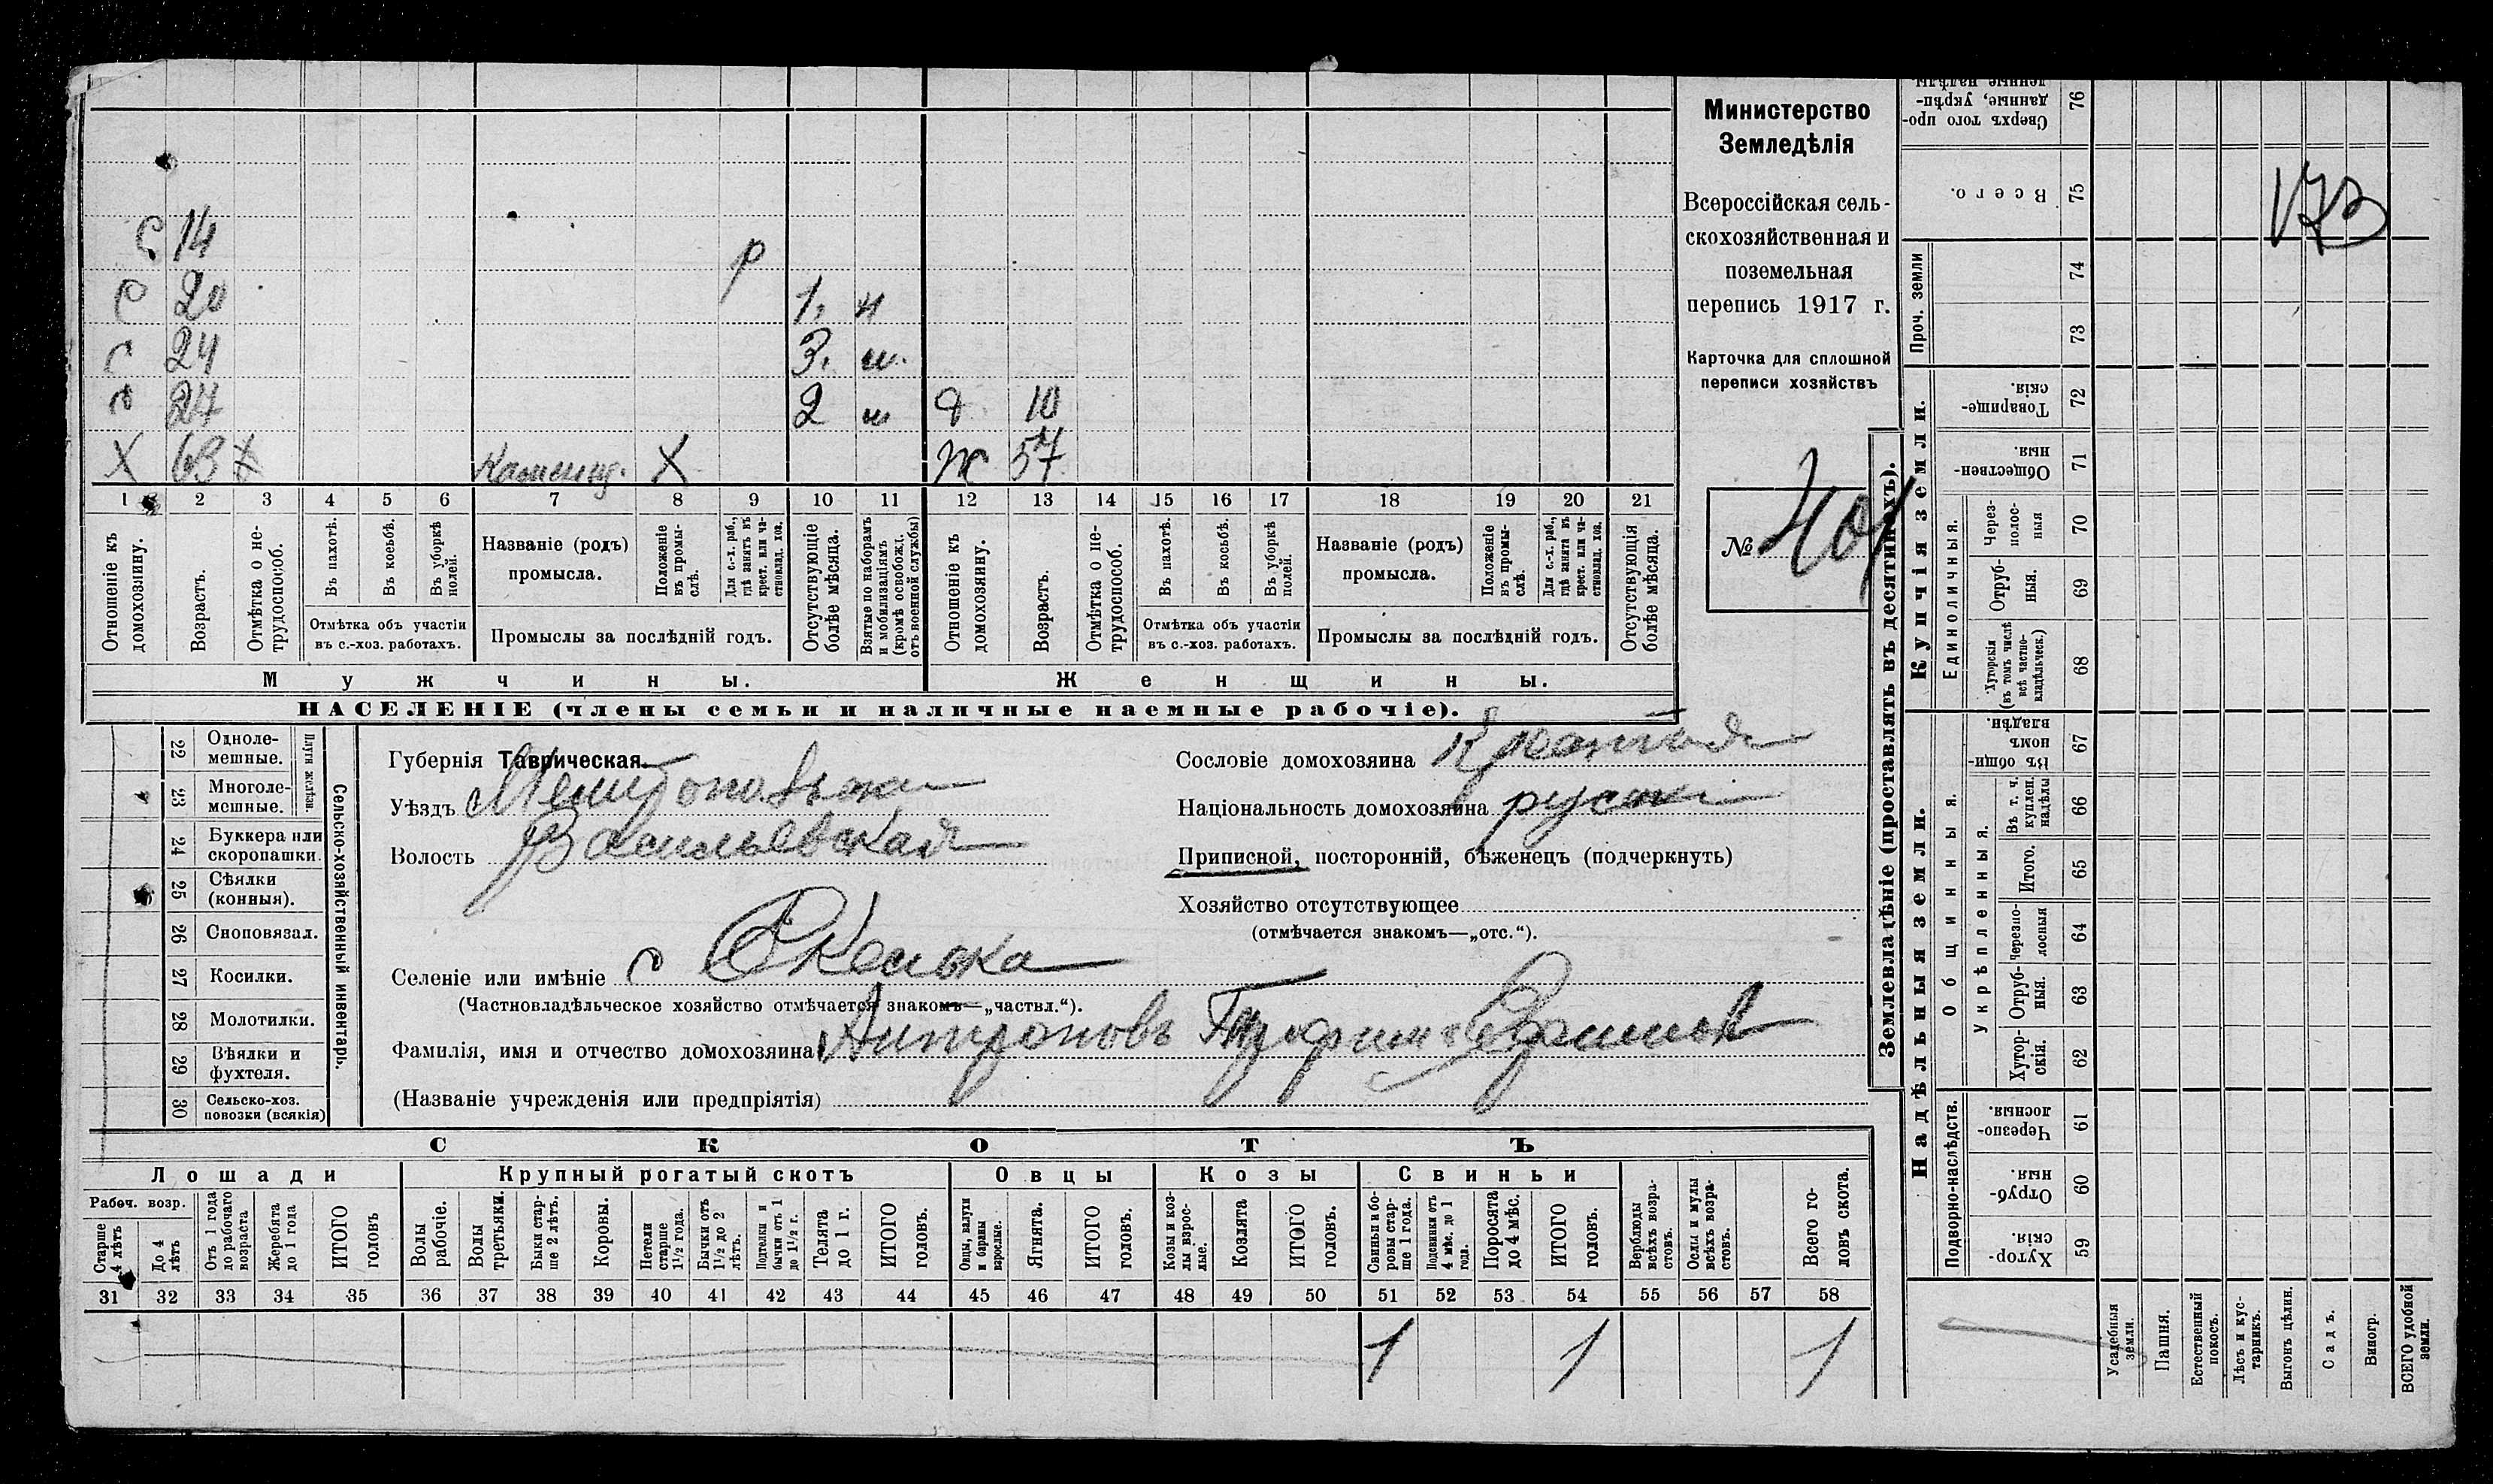 Министерство
Земледѣлія
Всероссійская сель-
скохозяйственная и
поземельная
перепись 1917 г.
Карточка для сплошной
переписи хозяйствъ
№
173
с 14
р
с 20 1, н
с 24 3. н.
с 27 2 н д 10
Х 63 Х Каменщ. Х ж 57
1 2 3 4 5 6 7 8 9 10 11 12 13 14 15 16 17 18 19 20 21
Отношеніе къ домохозяину.
Возрастъ.
Отмѣтка о не-трудоспособ.
Въ пахотѣ.
Въ косьбѣ.
Въ уборкѣ полей.
Отмѣтка объ участіи въ с.-хоз. работахъ.
Названіе (родъ) промысла.
Положеніе въ промы-слѣ.
Для с.-х. раб., гдѣ занятъ въ крест. или ча-стновлад. хоз.
Промыслы за послѣдній годъ.
Отсутствующіе болѣе мѣсяца.
Взятые по наборамъ и мобилизаціямъ (кромѣ освобожд. отъ военной службы)
Отношеніе къ домохозяину.
Возрастъ.
Отмѣтка о не-трудоспособ.
Въ пахотѣ.
Въ косьбѣ.
Въ уборкѣ полей.
Отмѣтка объ участіи въ с.-хоз. работахъ.
Названіе (родъ) промысла.
Положеніе въ промы-слѣ.
Для с.-х. раб., гдѣ занята въ крест. или ча-стновлад. хоз.
Промыслы за послѣдній годъ.
Отсутствующія болѣе мѣсяца.
Мужчины. Женщины.
НАСЕЛЕНІЕ (члены семьи и наличные наемные рабочіе).
Сельско-хозяйственный инвентарь.
Плуги желѣзн.
22 Одноле-мешные.
23 Многоле-мешные.
24 Буккера или скоропашки.
25 Сѣялки (конныя).
26 Сноповязал.
27 Косилки.
28 Молотилки.
29 Вѣялки и фухтеля.
30 Сельско-хоз. повозки (всякія)
Губернія Таврическая.
Уѣздъ
Волость Васильевская
Селеніе или имѣніе с Скелька
(Частновладѣльческое хозяйство отмѣчается знакомъ—„частвл.“).
Фамилія, имя и отчество домохозяина Антроповъ
(Названіе учрежденія или предпріятія)
Сословіе домохозяина
Національность домохозяина
Приписной, посторонній, бѣженецъ (подчеркнуть)
Хозяйство отсутствующее
(отмѣчается знакомъ—„отс.“).
СКОТЪ
Лошади Крупный рогатый скотъ Овцы Козы Свиньи
Рабоч. возр.
Старше 4 лѣтъ
До 4 лѣтъ
Отъ 1 года до рабочаго возраста
Жеребята до 1 года
ИТОГО головъ
Волы рабочіе.
Волы третьяки.
Быки стар-ше 2 лѣтъ.
Коровы.
Нетели старше 1½ года.
Бычки отъ 1½ до 2 лѣтъ.
Подтелки и бычки отъ 1 до 1½ г.
Телята до 1 г.
ИТОГО головъ.
Овцы, валухи и бараны взрослые.
Ягнята.
ИТОГО головъ.
Козы и коз-лы взрос-лые.
Козлята
ИТОГО головъ.
Свиньи и бо-ровы стар-ше 1 года.
Подсвинки отъ 4 мѣс. до 1 года.
Поросята до 4 мѣс.
ИТОГО головъ.
Верблюды всѣхъ возра-стовъ.
Ослы и мулы всѣхъ возра-стовъ.
Всего го-ловъ скота.
31 32 33 34 35 36 37 38 39 40 41 42 43 44 45 46 47 48 49 50 51 52 53 54 55 56 57 58
1 1 1
Землевладѣніе (проставлять въ десятинахъ).
Купчія земли.
Надѣльныя земли.
Сверхъ того про-данные, укрѣп-ленные надѣлы. 76
Всего. 75
Проч. земли
74
73
Товарище-скія. 72
Обществен-ныя. 71
Единоличныя.
Через-полос-ныя 70
Отруб-ныя. 69
Хуторскія (въ томъ числѣ всѣ частно-владѣльческ.) 68
Общинныя.
Въ общин-номъ владѣн. 67
Укрѣпленныя.
Въ т. ч. куплен. надѣлы 66
Итого. 65
Черезпо-лосныя 64
Отруб-ныя. 63
Хутор-скія. 62
Подворно-наслѣдств.
Черезпо-лосныя. 61
Отруб-ныя. 60
Хутор-скія. 59
Усадебныя земли.
Пашня.
Естественный покосъ.
Лѣсъ и кус-тарникъ.
Выгонъ цѣлин.
Садъ.
Виногр.
ВСЕГО удобной земли.